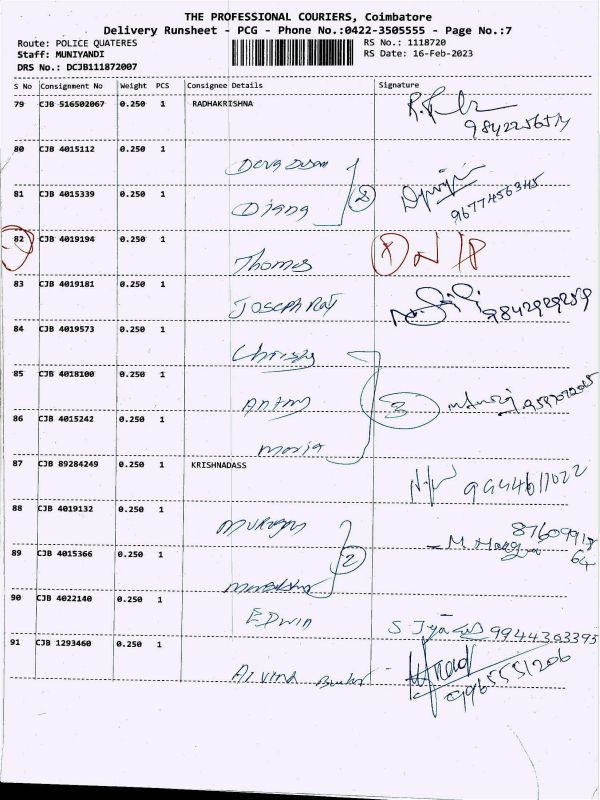 THE PROFESSIONAL COURIERS, Coimbatore
Delivery Runsheet - PCG - Phone No.:0422-3505555 - Page No.:7
Route: POLICE QUATERES RS No.: 1118720
Staff: MUNIYANDI RS Date: 16-Feb-2023
DRS No.: DCJB111872007
S No Consignment No Weight PCS Consignee Details Signature
79 CJB 516502067 0.250 1 RADHAKRISHNA
80 CJB 4015112 0.250 1
81 CJB 4015339 0.250 1 Diana 2 9677456345
82 CJB 4019194 0.250 1 Thomas
83 CJB 4019181 0.250 1 Joseph Raj 9842929259
84 CJB 4019573 0.250 1 Christy
85 CJB 4018100 0.250 1 Antony 3
86 CJB 4015242 0.250 1 Maria
87 CJB 89284249 0.250 1 KRISHNADASS 9994611022
88 CJB 4019132 0.250 1 Murugan 87609918
89 CJB 4015366 0.250 1 2 64
90 CJB 4022140 0.250 1 EDWIN 9944363395
91 CJB 1293460 0.250 1 9965551206